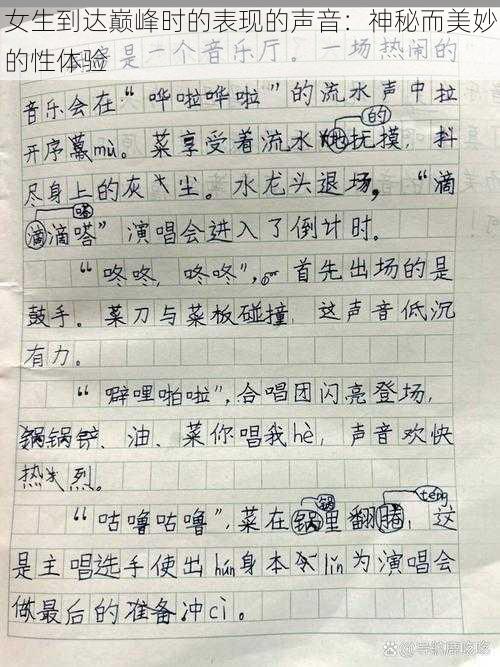 女生到达巅峰时的表现的声音：神秘而美妙
的性体验
是一个音乐厅。一场热闹的
音乐会在“哗啦哗啦”的流水声中拉
开序幕mù。菜享受着流水的抚摸，抖
尽身上的灰尘。水龙头退场，“滴
滴滴嗒”演唱会进入了倒计时。
“咚咚，咚咚”，首先出场的是
鼓手。菜刀与菜板碰撞，这声音低沉
有力。
“噼哩啪啦”，合唱团闪亮登场，
锅锅铲、油、菜你唱我hè，声音欢快
热烈。
“咕噜咕噜”，菜在锅里翻腾，这
téng
是主唱选手使出hún身本lǐn为演唱会
做最后的准备冲cì。
@导航鹿哆哆